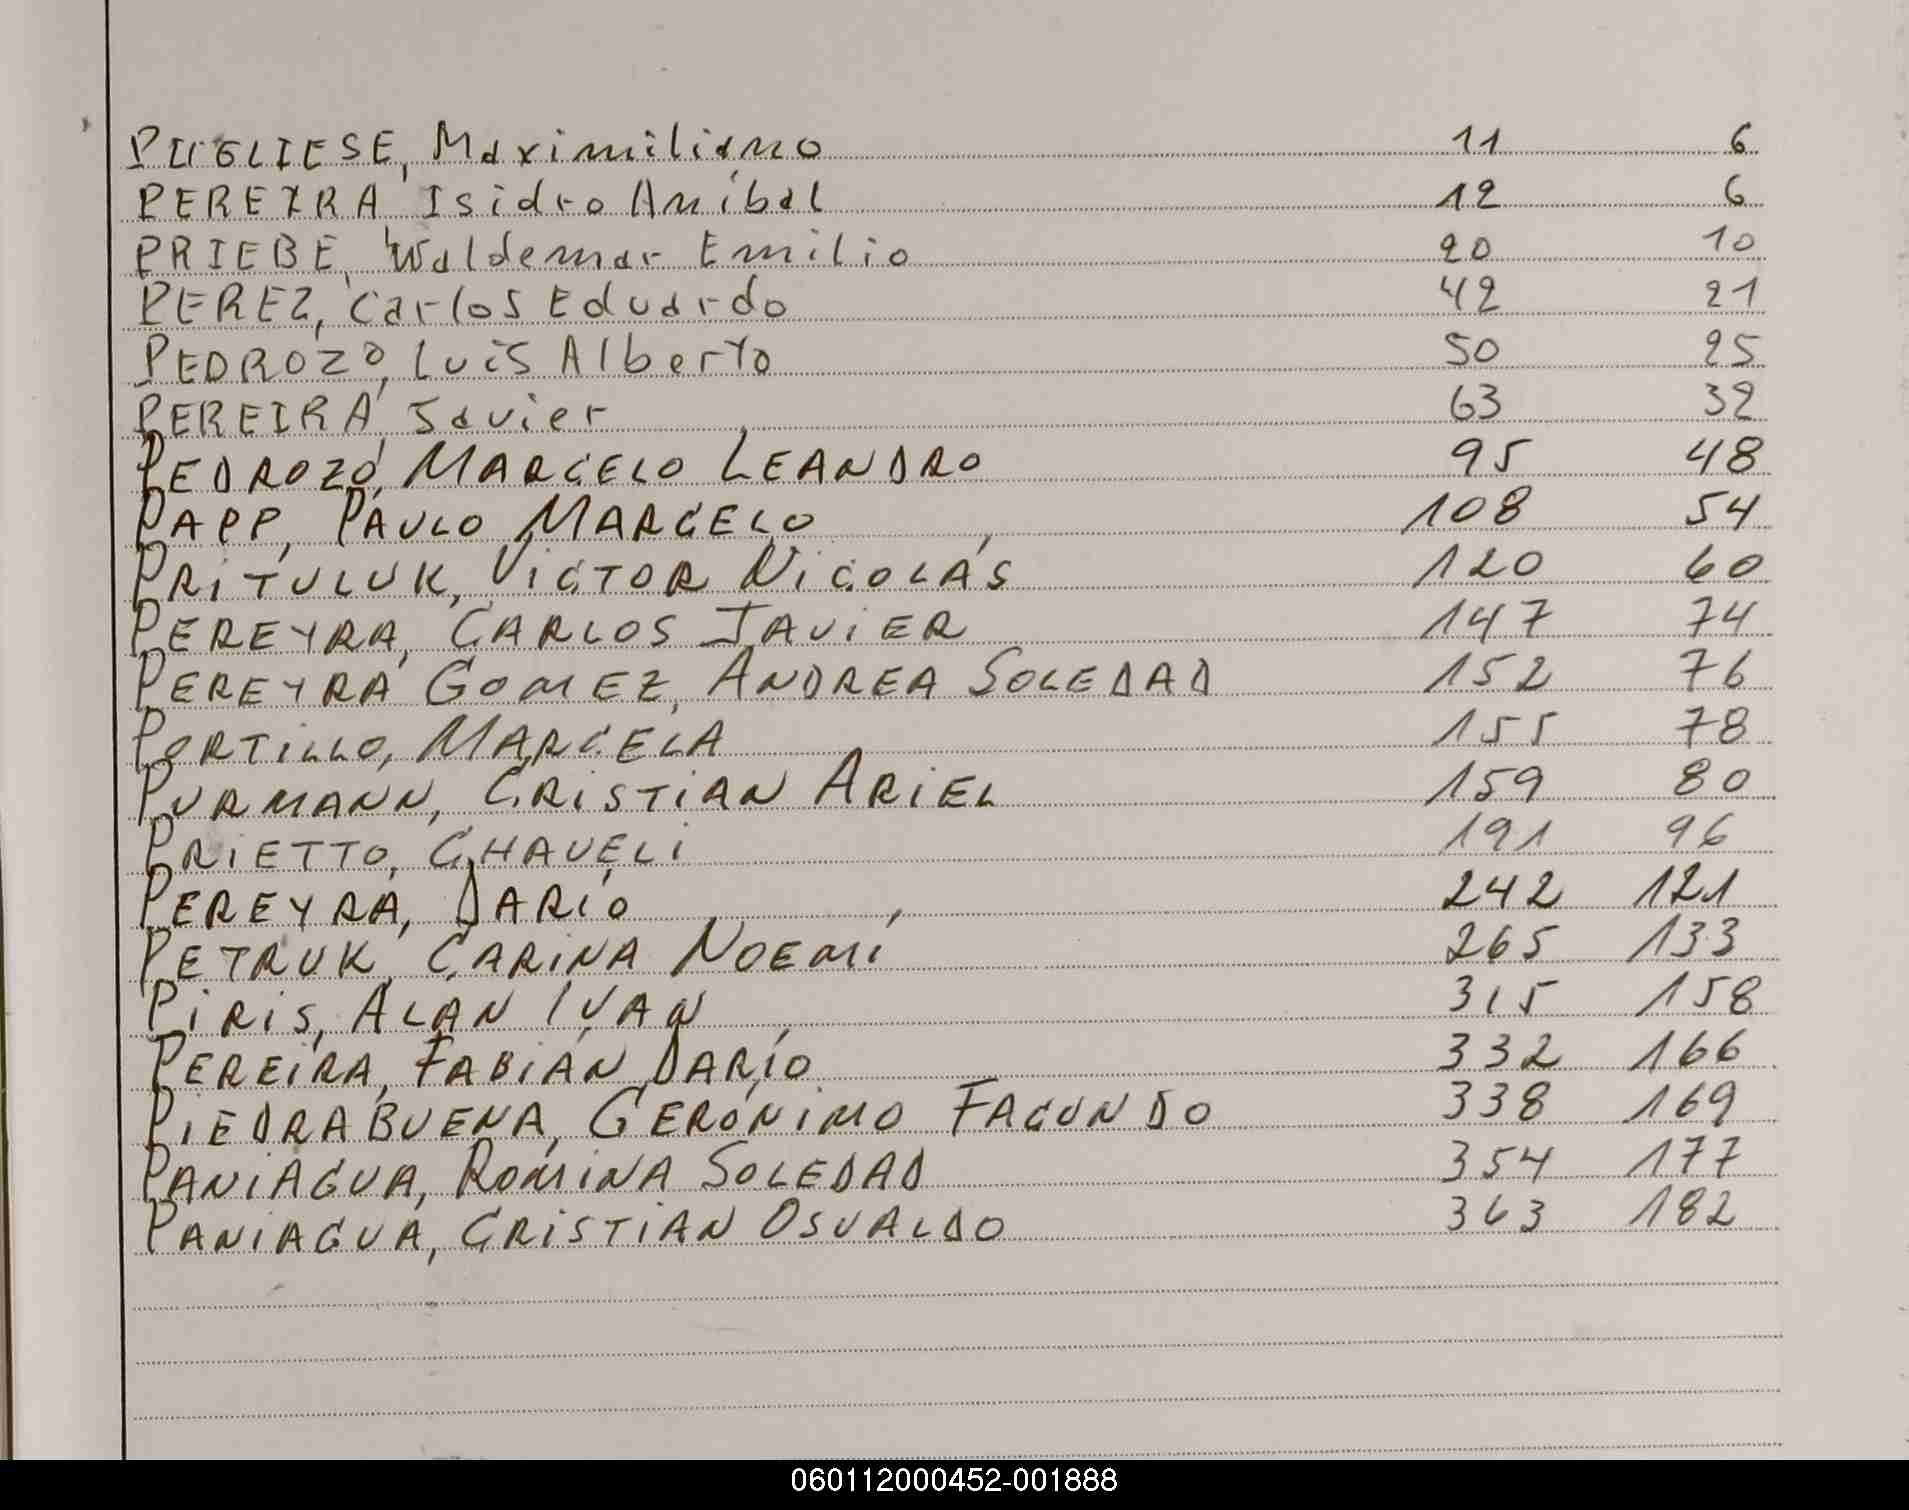 PUGLIESE, Maximiliano 11 6
PEREYRA Isidro Anibal 12 6
PRIEBE, Waldemar Emilio 20 10
PEREZ, Carlos Eduardo 42 21
PEDROZO, Luis Alberto 50 25
PEREIRA, Javier 63 32
PEDROZO, MARCELO LEANDRO 95 48
PAPP, PAULO MARCELO 108 54
PRITULUK, VICTOR NICOLÁS 120 60
PEREYRA, CARLOS JAVIER 147 74
PEREYRA GOMEZ, ANDREA SOLEDAD 152 76
PORTILLO, MARCELA 155 78
PURMANN, CRISTIAN ARIEL 159 80
PRIETTO, CHAVELI 191 96
PEREYRA, DARÍO 242 121
PETRUK, CARINA NOEMÍ 265 133
PIRIS, ALAN IVAN 315 158
PEREIRA, FABIÁN DARÍO 332 166
PIEDRABUENA, GERÓNIMO FACUNDO 338 169
PANIAGUA, ROMINA SOLEDAD 354 177
PANIAGUA, CRISTIAN OSVALDO 363 182
060112000452-001888